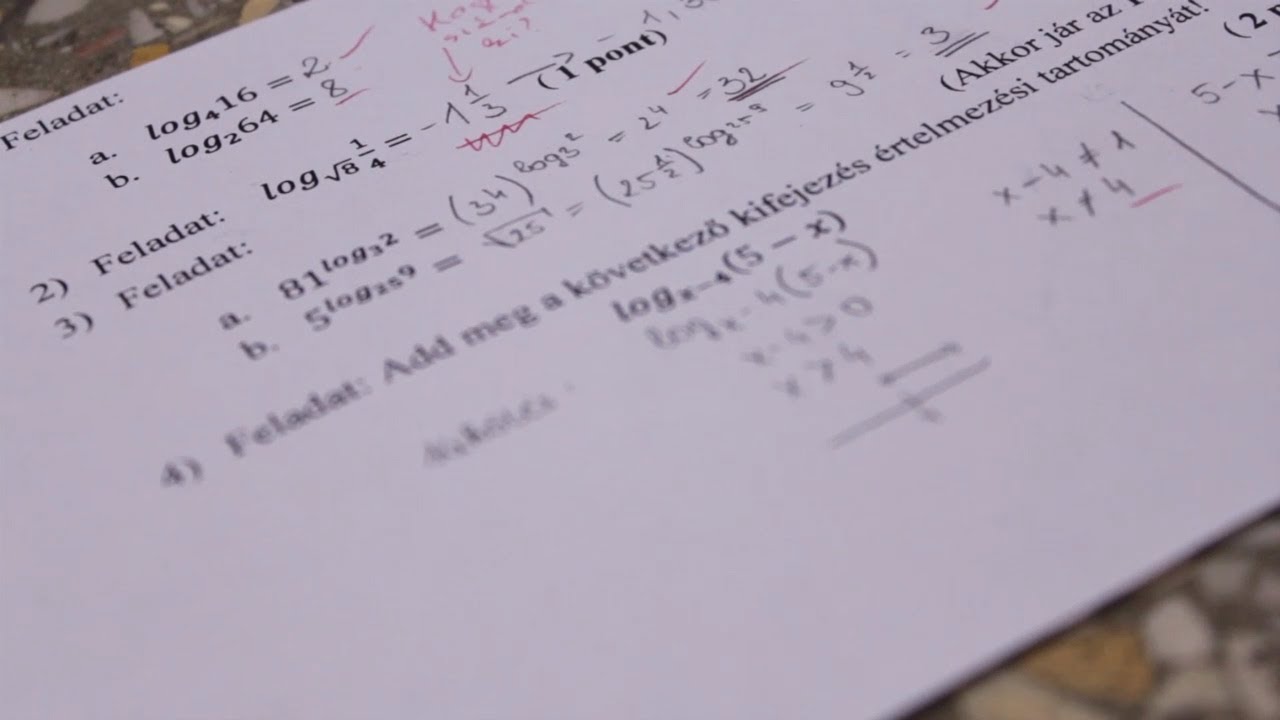 Feladat:
a. log₄16 = 2
b. log₂64 = 8
2) Feladat: log√8 1/4 = -1 1/3 (1 pont)
3) Feladat:
a. 81^log₃2 = (34)^log3² = 2⁴ = 32
b. 5^log₂₅9 = √25 = (25^1/2)^log25 9 = 9^1/2 = 3
(Akkor jár az
4) Feladat: Add meg a következő kifejezés értelmezési tartományát! (2
logₓ₋₄(5 − x)
logₓ₋4(5-x)
x-4>0
x>4
x-4≠1
x≠4
5-x